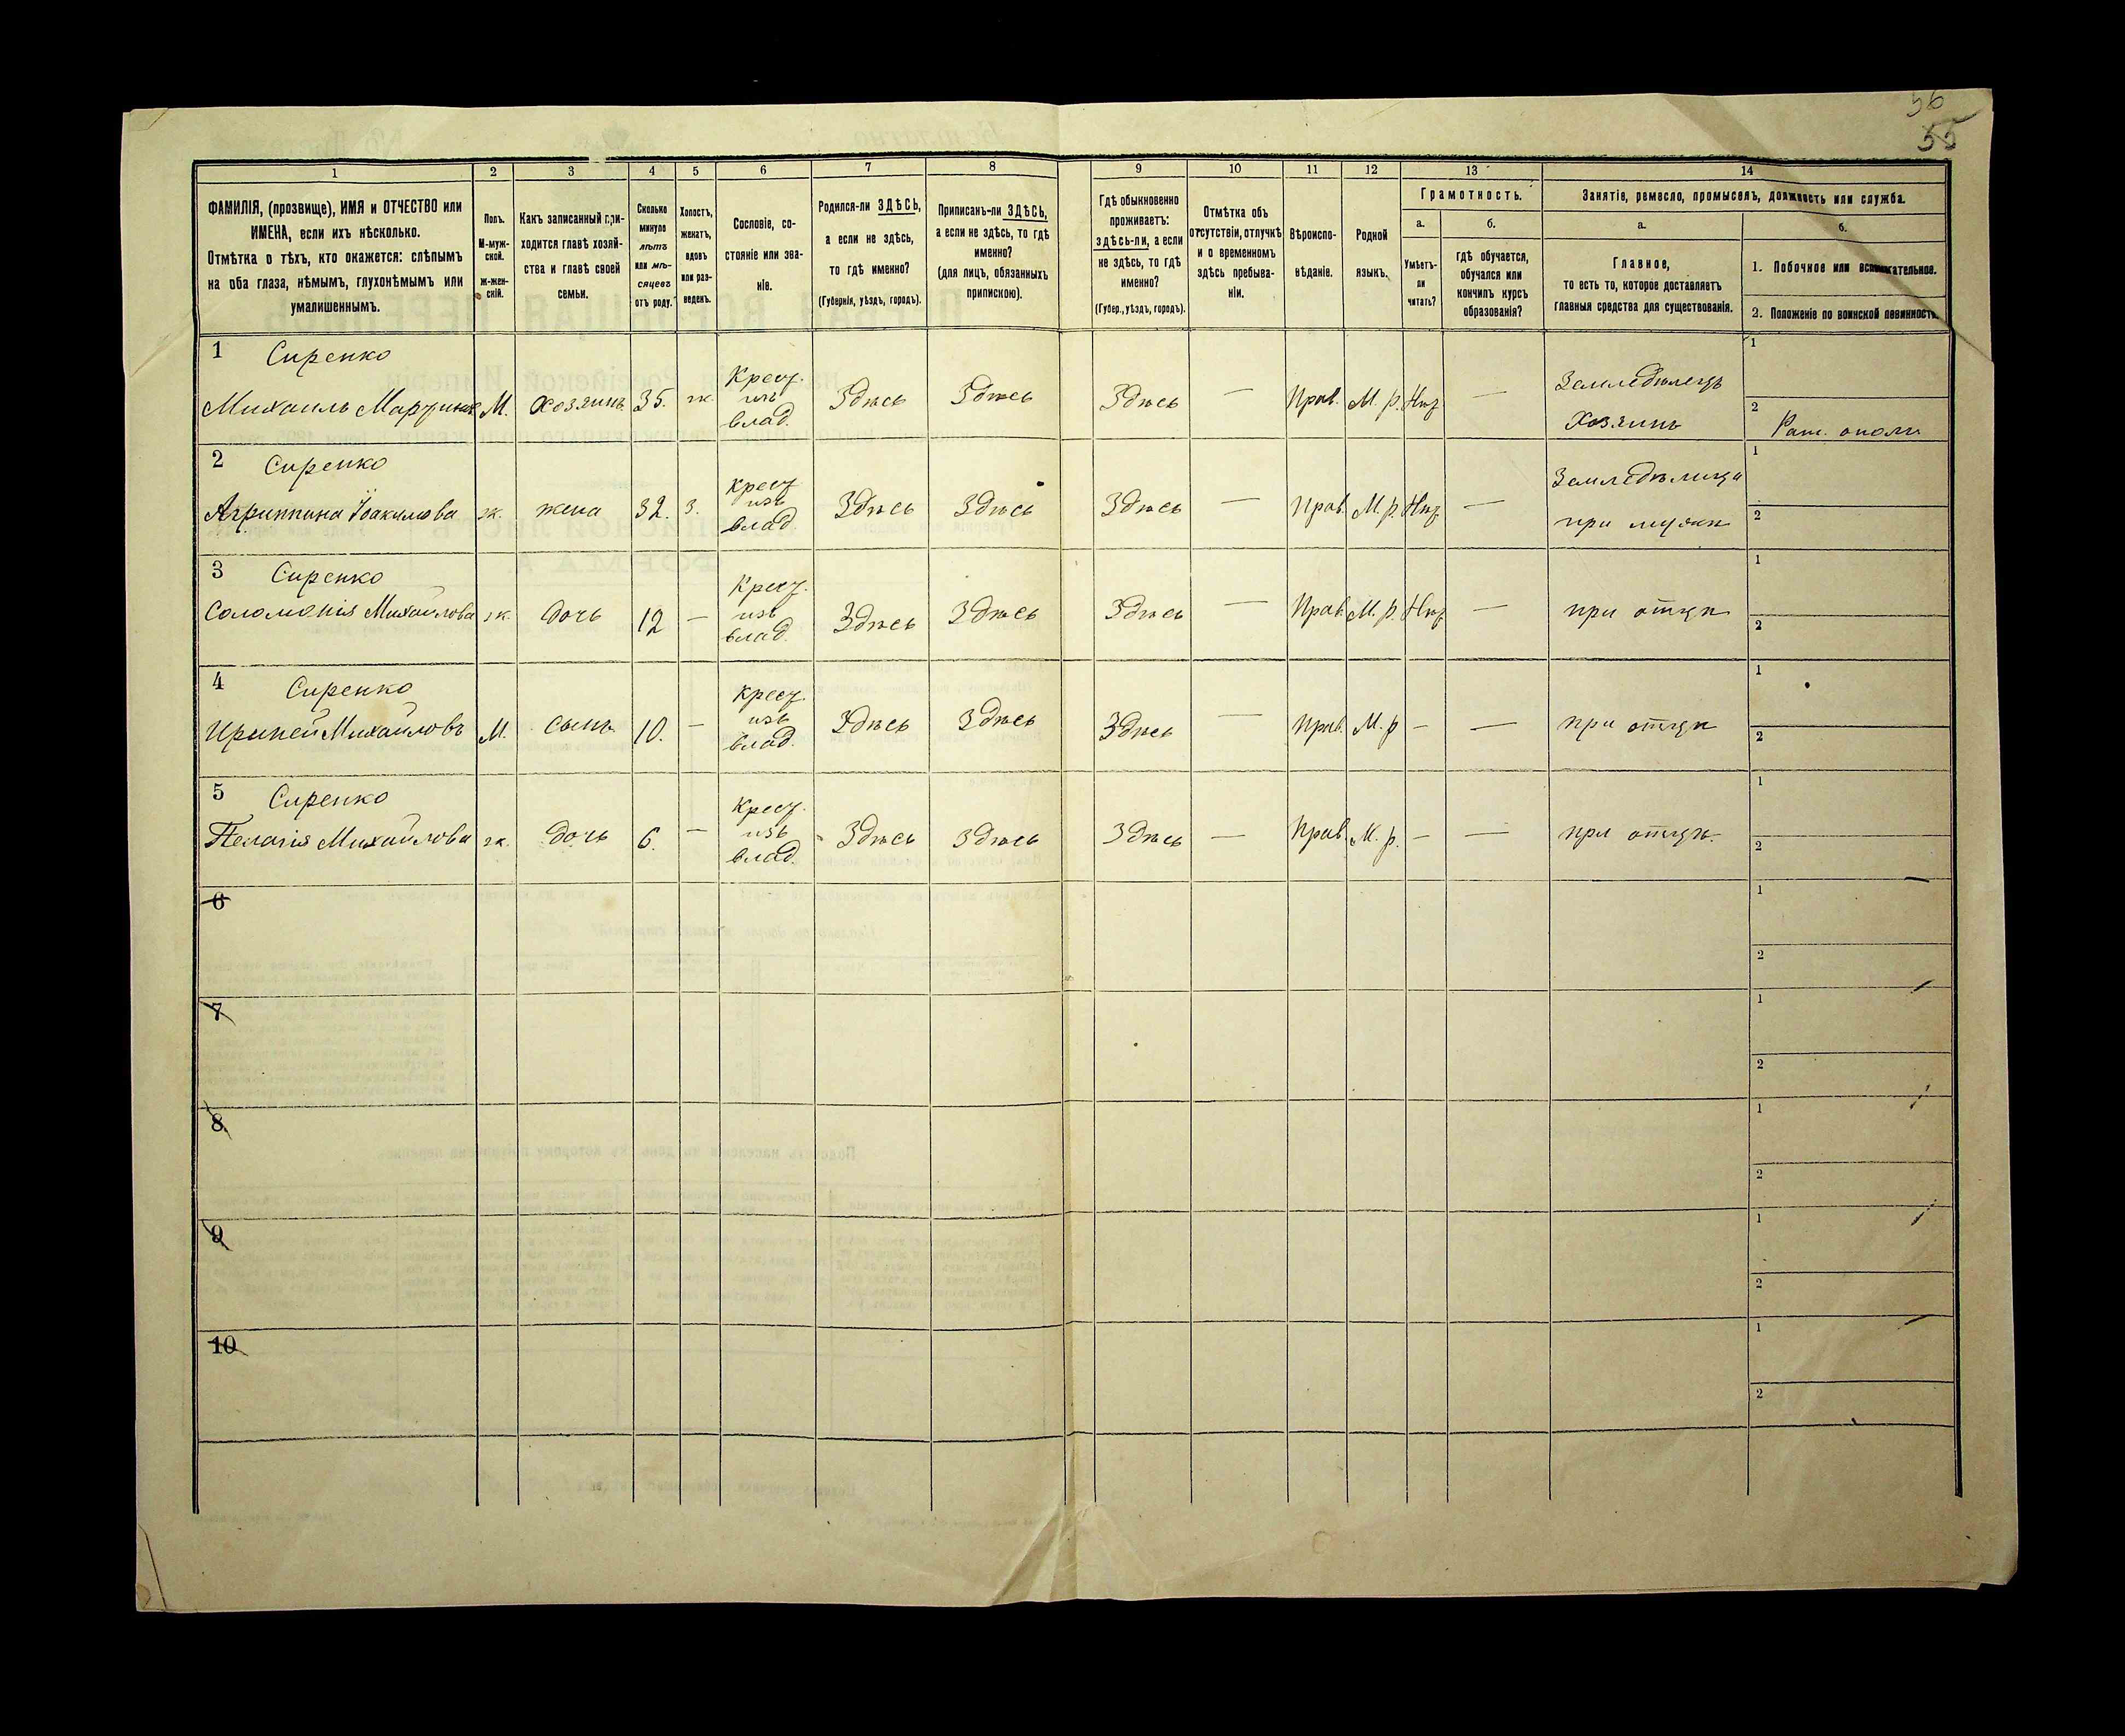 56
55
1 2 3 4 5 6 7 8 9 10 11 12 13 14
ФАМИЛІЯ, (прозвище), ИМЯ и ОТЧЕСТВО или
ИМЕНА, если ихъ нѣсколько.
Отмѣтка о тѣхъ, кто окажется: слѣпымъ
на оба глаза, нѣмымъ, глухонѣмымъ или
умалишеннымъ.
Полъ.
М-муж-
ской.
ж-жен-
скій.
Какъ записанный при-
ходится главѣ хозяй-
ства и главѣ своей
семьи.
Сколько
минуло
лѣтъ
или мѣ-
сяцевъ
отъ роду.
Холостъ,
женатъ,
вдовъ
или раз-
веденъ.
Сословіе, со-
стояніе или зва-
ніе.
Родился-ли ЗДѢСЬ,
а если не здѣсь,
то гдѣ именно?
(Губернія, уѣздъ, городъ).
Приписанъ-ли ЗДѢСЬ,
а если не здѣсь, то гдѣ
именно?
(для лицъ, обязанныхъ
припискою).
Гдѣ обыкновенно
проживаетъ:
здѣсь-ли, а если
не здѣсь, то гдѣ
именно?
(Губер., уѣздъ, городъ).
Отмѣтка объ
отсутствіи, отлучкѣ
и о временномъ
здѣсь пребыва-
ніи.
Вѣроиспо-
вѣданіе.
Родной
языкъ.
Грамотность.
а.
Умѣетъ-
ли
читать?
б.
гдѣ обучается,
обучался или
кончилъ курсъ
образованія?
Занятіе, ремесло, промыселъ, должность или служба.
а.
Главное,
то есть то, которое доставляетъ
главныя средства для существованія.
б.
1. Побочное или вспомогательное.
2. Положеніе по воинской повинности.
1 Сиренко
Михаилъ Мартинов М. хозяинъ 35. ж. Крест. изъ влад. Здѣсь Здѣсь Здѣсь — Прав. М. р. Нѣт — Земледѣлецъ
Хозяинъ
1
2 Рат. ополч.
2 Сиренко
Агриппина Іоакимова ж. жена 32. з. Крест. изъ влад. Здѣсь Здѣсь Здѣсь — Прав. М. р. Нѣт — Земледѣлица
при мужѣ
1
2
3 Сиренко
Соломонія Михайлова ж. дочь 12 — Крест. изъ влад. Здѣсь Здѣсь Здѣсь — Прав. М. р. Нѣт — при отцѣ
1
2
4 Сиренко
Ириней Михайловъ М. сынъ 10. — Крест. изъ влад. Здѣсь Здѣсь Здѣсь — Прав. М. р — — при отцѣ
1
2
5 Сиренко
Пелагія Михайлова ж. дочь 6. — Крест. изъ влад. Здѣсь Здѣсь Здѣсь — Прав. М. р. — — при отцѣ.
1
2
6
1
2
7
1
2
8
1
2
9
1
2
10
1
2